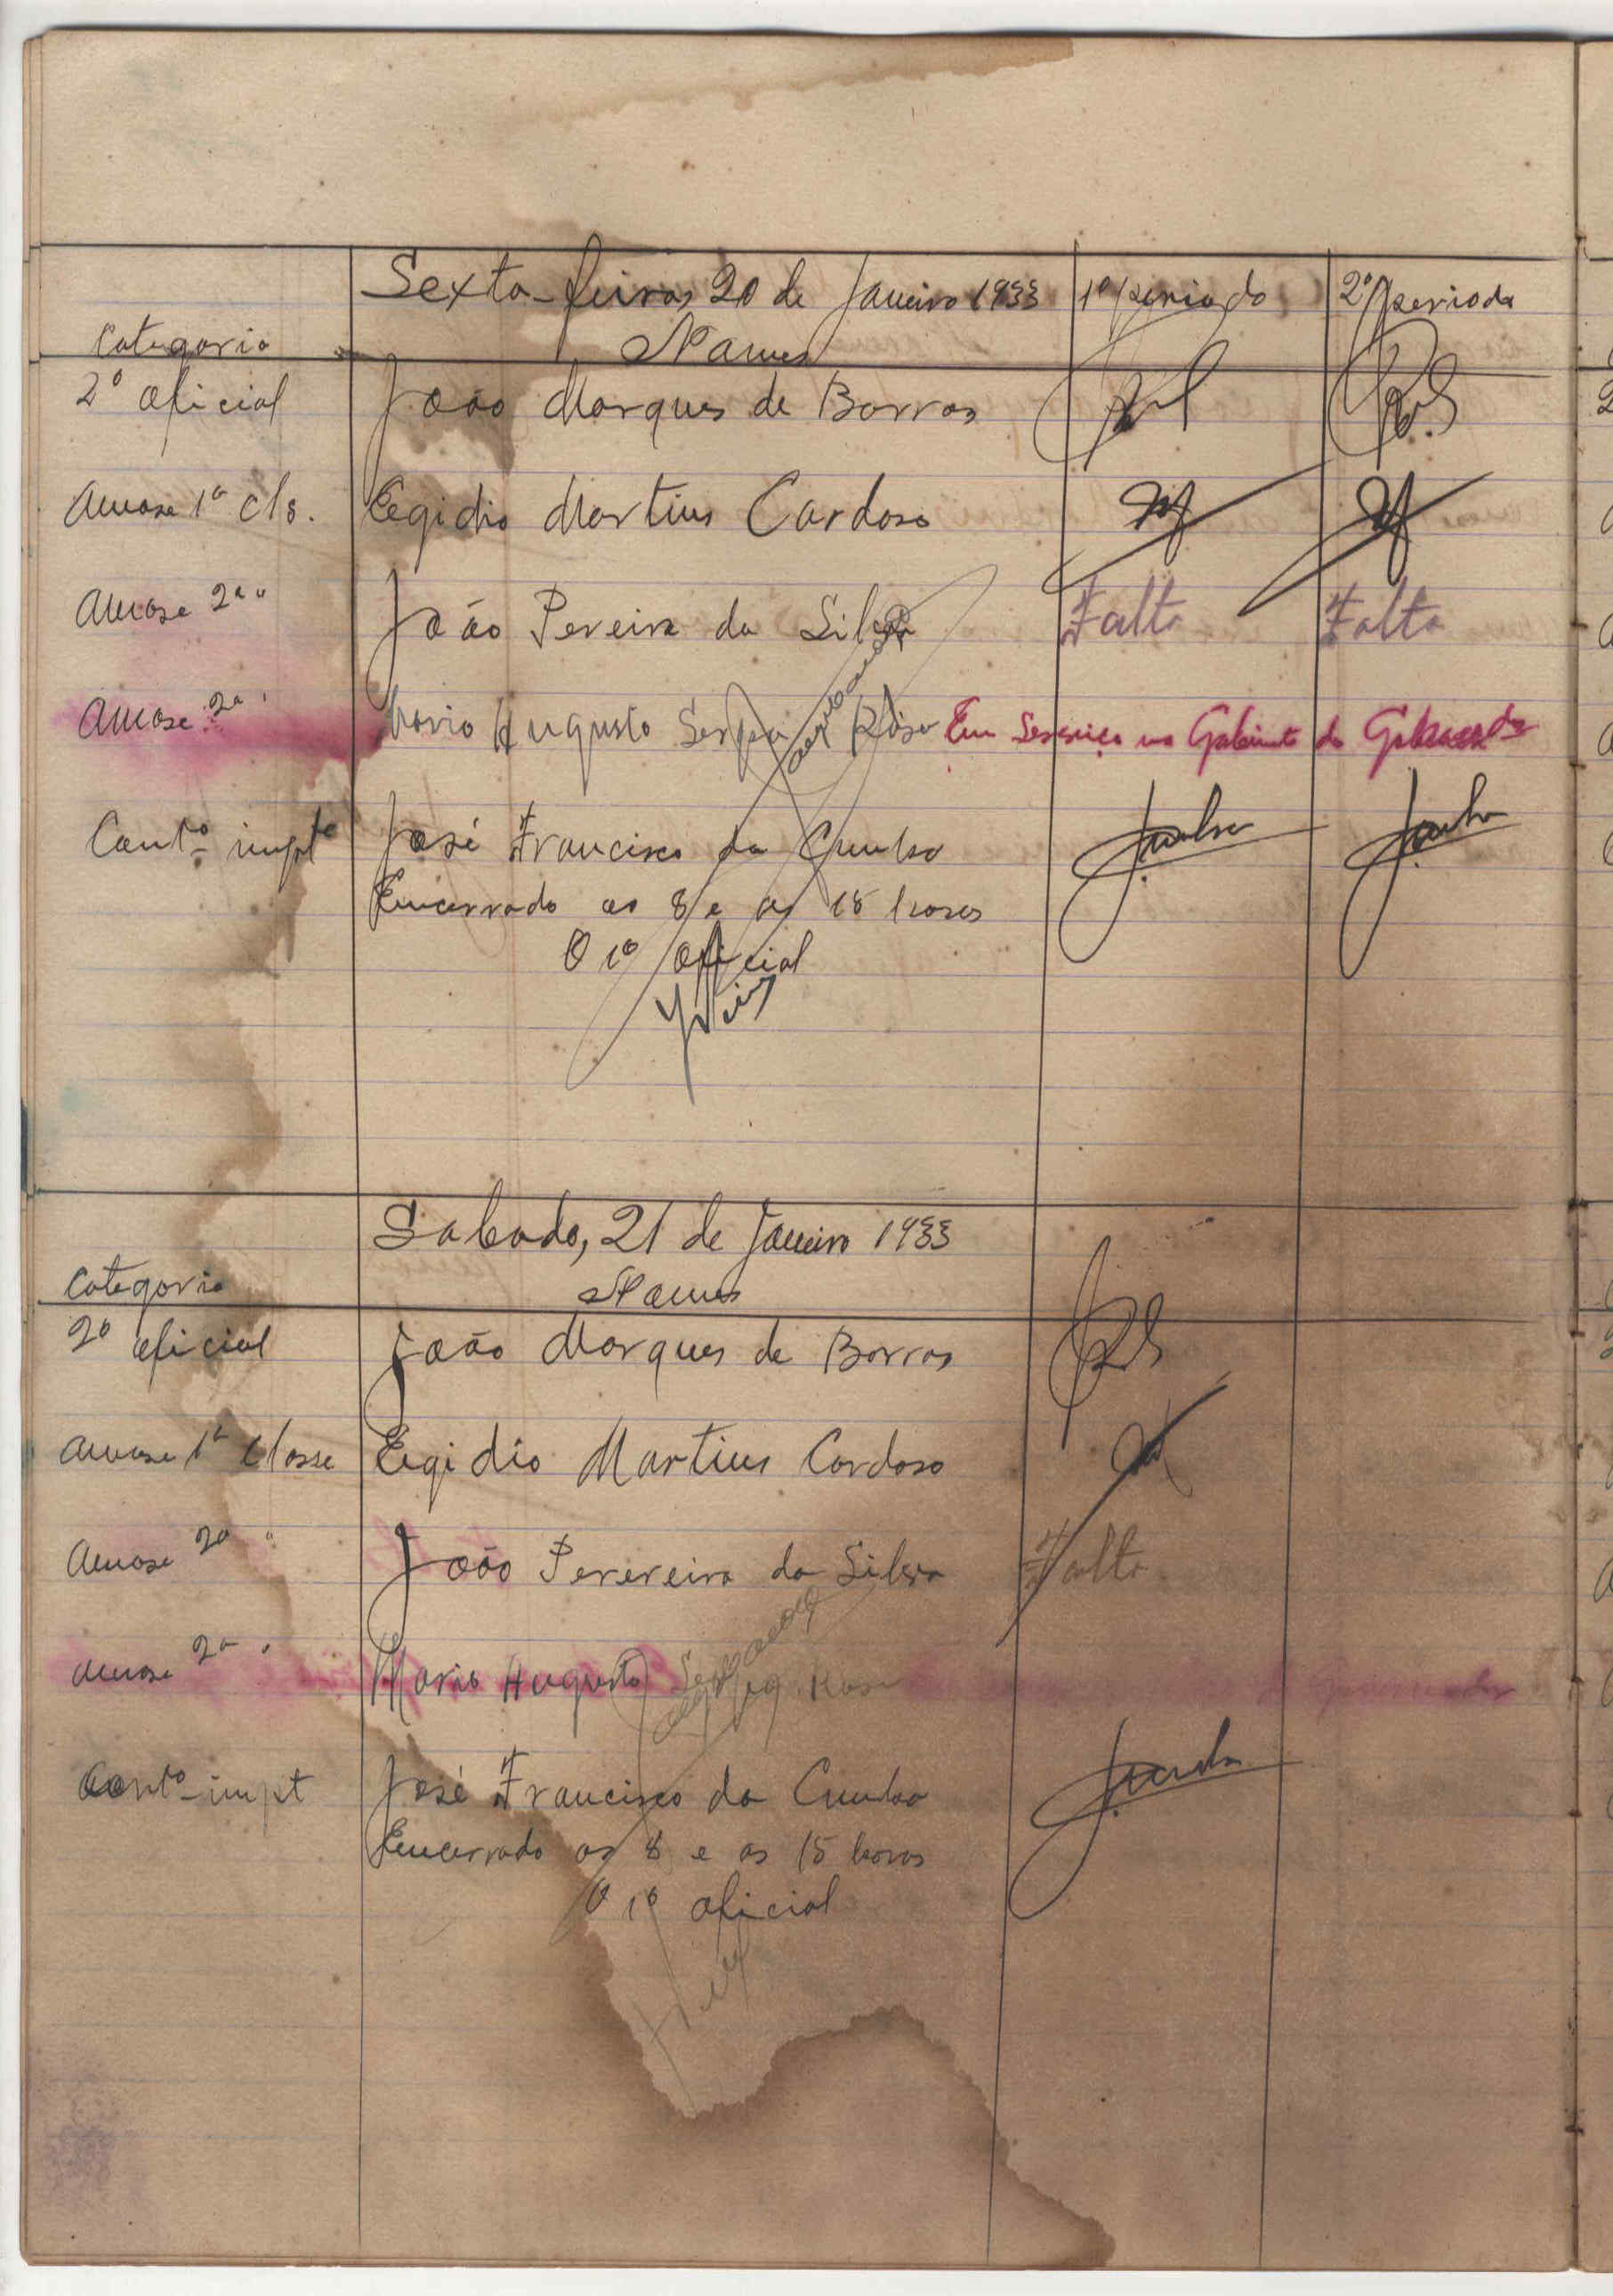 Sexta-feira, 20 de Janeiro 1933 1º periodo 2º periodo
Categoria Nomes
2º oficial João Marques de Barros
Amase 1ª cls. Egidio Martins Cardoso
Amase 2ª " João Pereira da Silva Falta Falta
Amase 2ª " Mario Augusto Serpa Rosa Em Serviço no Gabinete do
Contº impte José Francisco da Cunha
Encerrado as 8 e as 15 horas
O 1º oficial
Sabado, 21 de Janeiro 1933
Categoria Nomes
2º oficial João Marques de Barros
Amase 1ª Classe Egidio Martins Cardoso
Amase 2ª " João Perereira da Silva Falta
Amase 2ª " Mario Augusto Serpa Rosa
Contº impt José Francisco da Cunha
Encerrado as 8 e as 15 horas
O 1º oficial